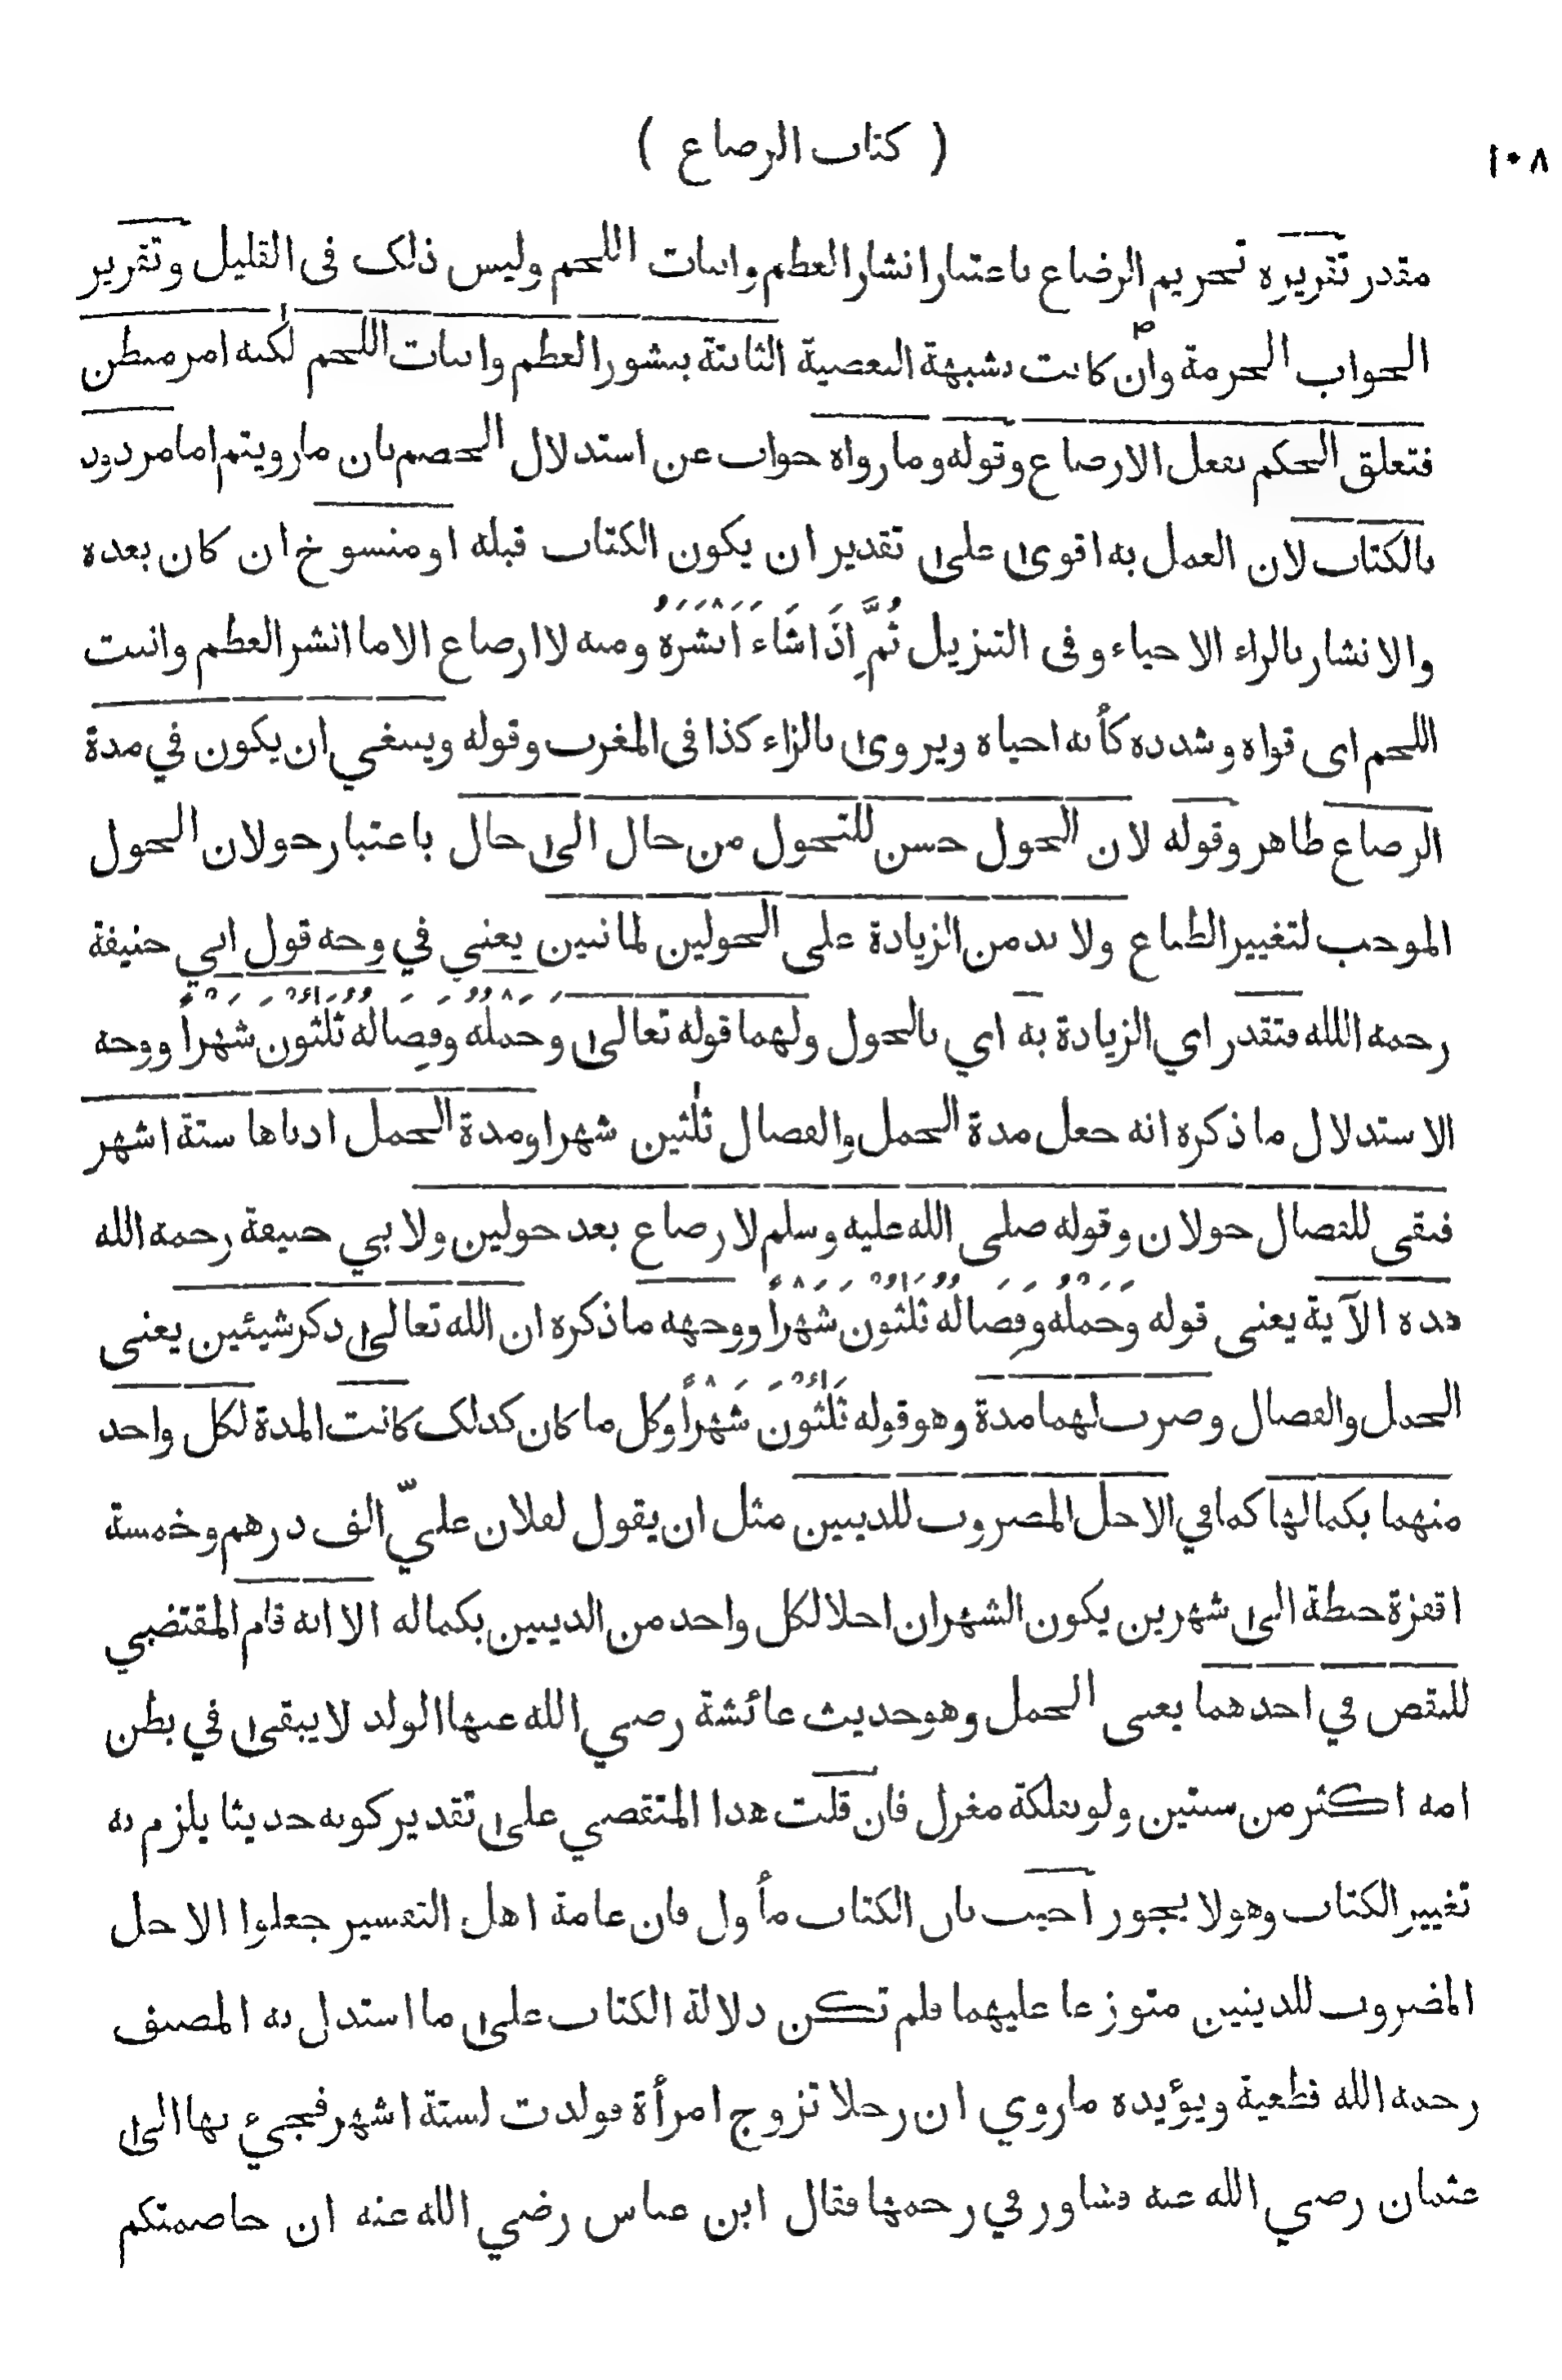 ١٠٨
( كتاب الرضاع )
مقدر تقريره تحريم الرضاع باعتبار انشار العظم وانبات اللحم وليس ذلك فى القليل وتقرير
الجواب الحرمة وان كانت لشبهة البعضية الثابتة بنشور العظم وانبات اللحم لكنه امر مبطن
فتعلق الحكم بفعل الارضاع وقوله وما رواه جواب عن استدلال الخصم بان ما رويتم اما مردود
بالكتاب لان العمل به اقوى على تقدير ان يكون الكتاب قبله او منسوخ ان كان بعده
والانشار بالراء الاحياء وفى التنزيل ثُمَّ اِذَا شَاءَ اَنْشَرَهُ ومنه لا ارضاع الا ما انشر العظم وانبت
اللحم اى قواه وشدده كأنه احياه ويروى بالزاء كذا فى المغرب وقوله وينبغي ان يكون في مدة
الرضاع ظاهر وقوله لان الحول حسن للتحول من حال الى حال باعتبار حولان الحول
الموجب لتغيير الطباع ولا بد من الزيادة على الحولين لما نبين يعني في وجه قول ابي حنيفة
رحمه الله فتقدر اي الزيادة به اي بالحول ولهما قوله تعالى وَحَمْلُهُ وَفِصَالُهُ ثَلٰثُونَ شَهْراً ووجه
الاستدلال ما ذكره انه جعل مدة الحمل والفصال ثلٰثين شهرا ومدة الحمل ادناها ستة اشهر
فبقى للفصال حولان وقوله صلى الله عليه وسلم لا رضاع بعد حولين ولابي حنيفة رحمه الله
هذه الآية يعنى قوله وَحَمْلُهُ وَفِصَالُهُ ثَلٰثُونَ شَهْراً ووجهه ما ذكره ان الله تعالى ذكر شيئين يعنى
الحمل والفصال وضرب لهما مدة وهو قوله ثَلٰثُونَ شَهْراً وكل ما كان كذلك كانت المدة لكل واحد
منهما بكمالها كما في الاجل المضروب للدينين مثل ان يقول لفلان عليّ الف درهم وخمسة
اقفزة حنطة الى شهرين يكون الشهران اجلا لكل واحد من الدينين بكماله الا انه قام المقتضي
للنقص في احدهما يعنى الحمل وهو حديث عائشة رضي الله عنها الولد لا يبقى في بطن
امه اكثر من سنتين ولو بفلكة مغزل فان قلت هذا المتقصي على تقدير كونه حديثا يلزم به
تغيير الكتاب وهو لا يجوز اجيب بان الكتاب مأول فان عامة اهل التفسير جعلوا الاجل
المضروب للدينين متوزعا عليهما فلم تكن دلالة الكتاب على ما استدل به المصنف
رحمه الله قطعية ويؤيده ما روي ان رجلا تزوج امرأة فولدت لستة اشهر فجيء بها الى
عثمان رضي الله عنه فشاور في رجمها فقال ابن عباس رضي الله عنه ان خاصمتكم